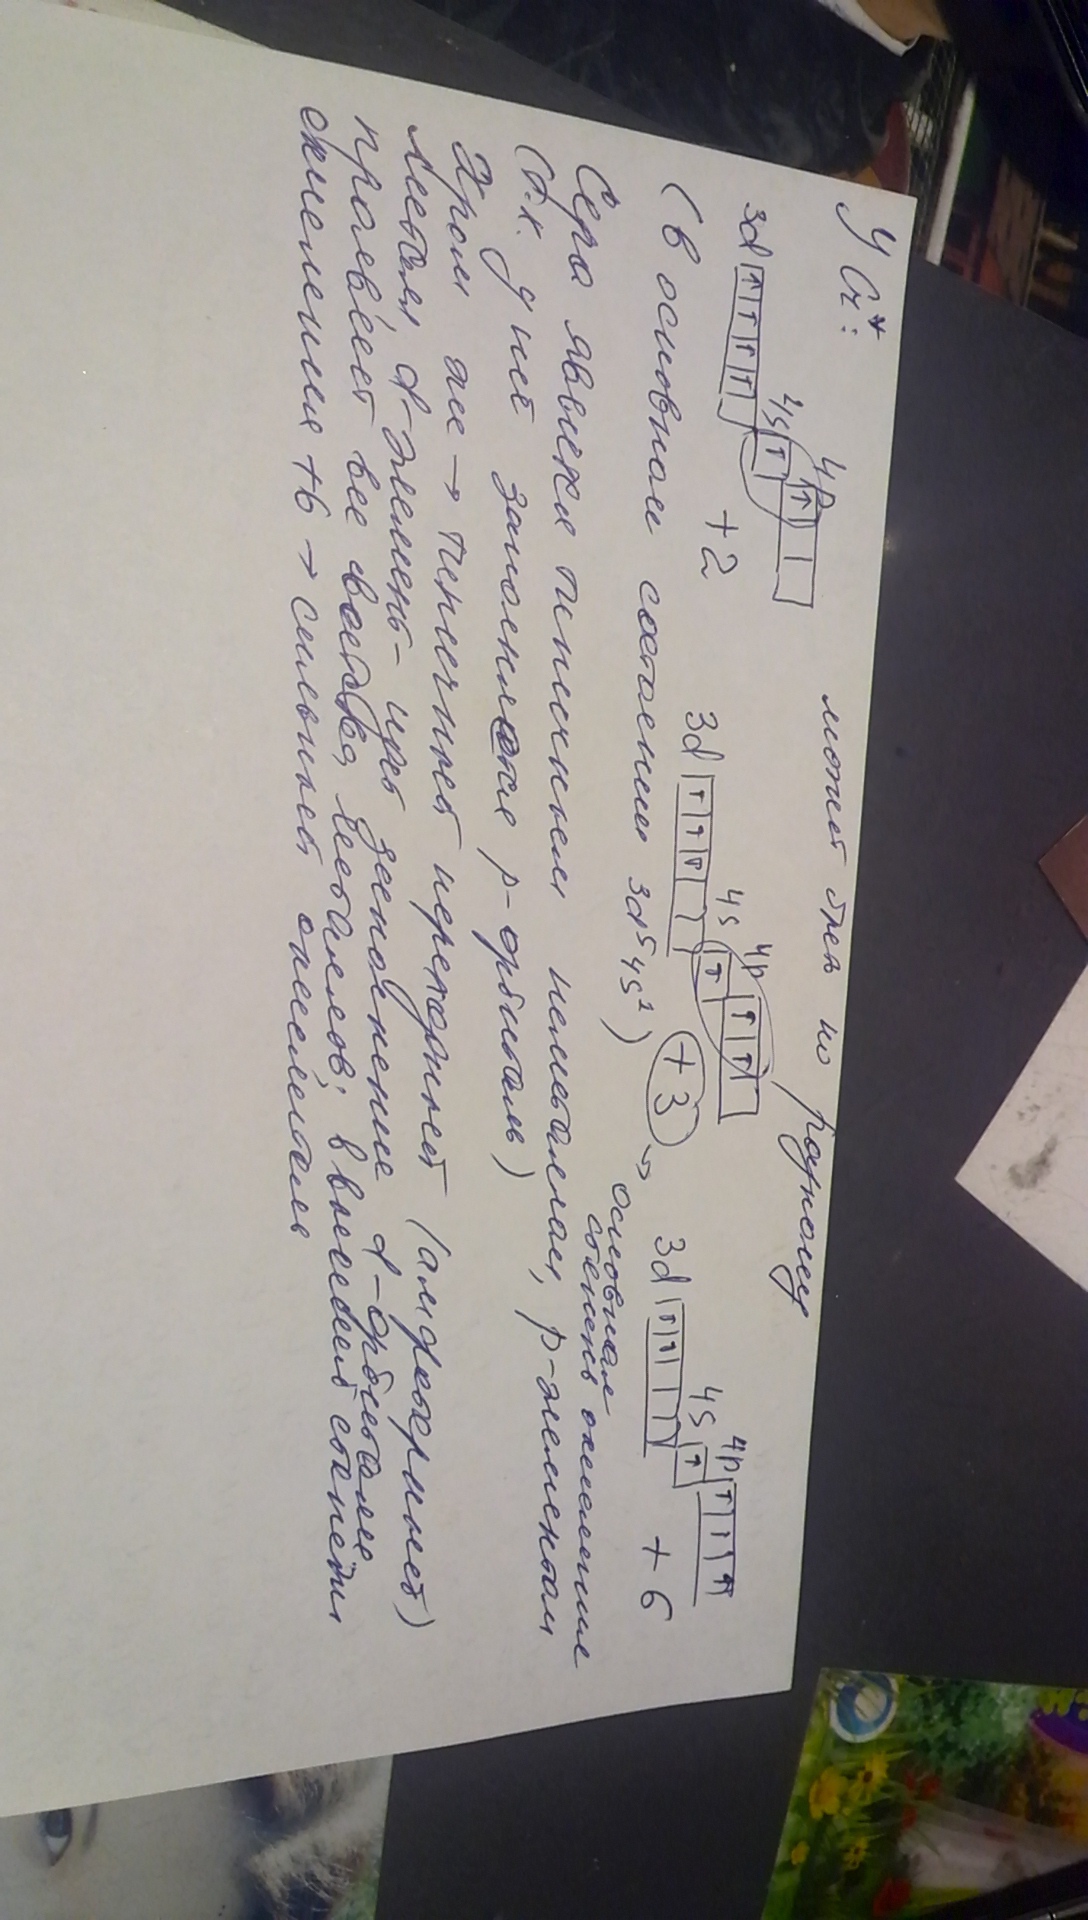 У Cr*:
может быть по разному
3d 4s 4p +2
3d 4s 4p +3 → основная степень окисления
3d 4s 4p +6
(в основном состоянии 3d⁵4s²)
Сера является типичным неметаллом, p-элементом
(т.к. у неё заполняются p-орбиталь)
Хром же → типичный переходный (амфотерный)
металл, d-элемент - идёт заполнение d-орбитали
проявляет все свойства металлов; в высшей степени
окисления +6 → сильный окислитель